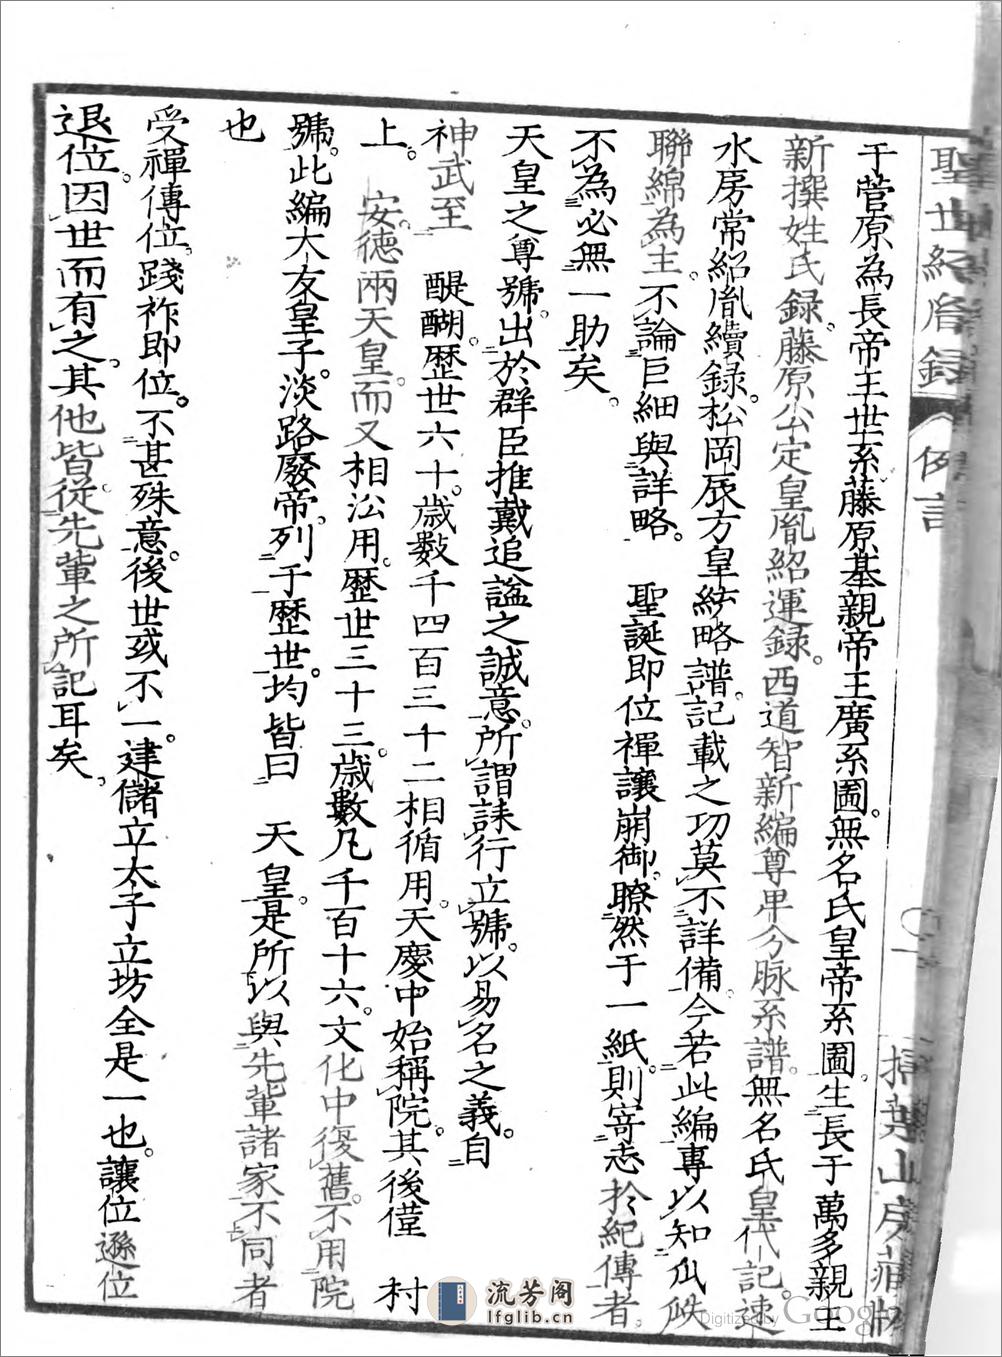 聖世紹胤録 例言
于菅原為長帝王世系藤原基親帝王廣系圖。無名氏皇帝系圖。生長于萬多親王
新撰姓氏録。藤原公定皇胤紹運録。西道智新編尊卑分脉系譜。無名氏皇代記。速
水房常紹胤續録。松岡辰方皇統略譜。記載之功莫不詳備。今若此編專以知瓜瓞
聯綿為主。不論巨細與詳略。 聖誕即位禪讓崩御。瞭然于一紙。則寄志於紀傳者。
不為必無一助矣。
天皇之尊號。出於群臣推戴追謚之誠意。所謂誄行立號。以易名之義。自
神武至 醍醐。歴世六十。歳數千四百三十二相循用。天慶中始稱院。其後僅 村
上。 安徳兩天皇。而又相沿用。歴世三十三。歳數凡千百十六。文化中復舊。不用院
號。此編大友皇子。淡路廢帝。列于歴世。均皆曰 天皇。是所以與先輩諸家不同者
也
受禪傳位。踐祚即位。不甚殊意。後世或不一。建儲立太子立坊全是一也。讓位遜位
退位。因世而有之。其他皆從先輩之所記耳矣。
流芳阁
lfglib.cn
Digitized by Google